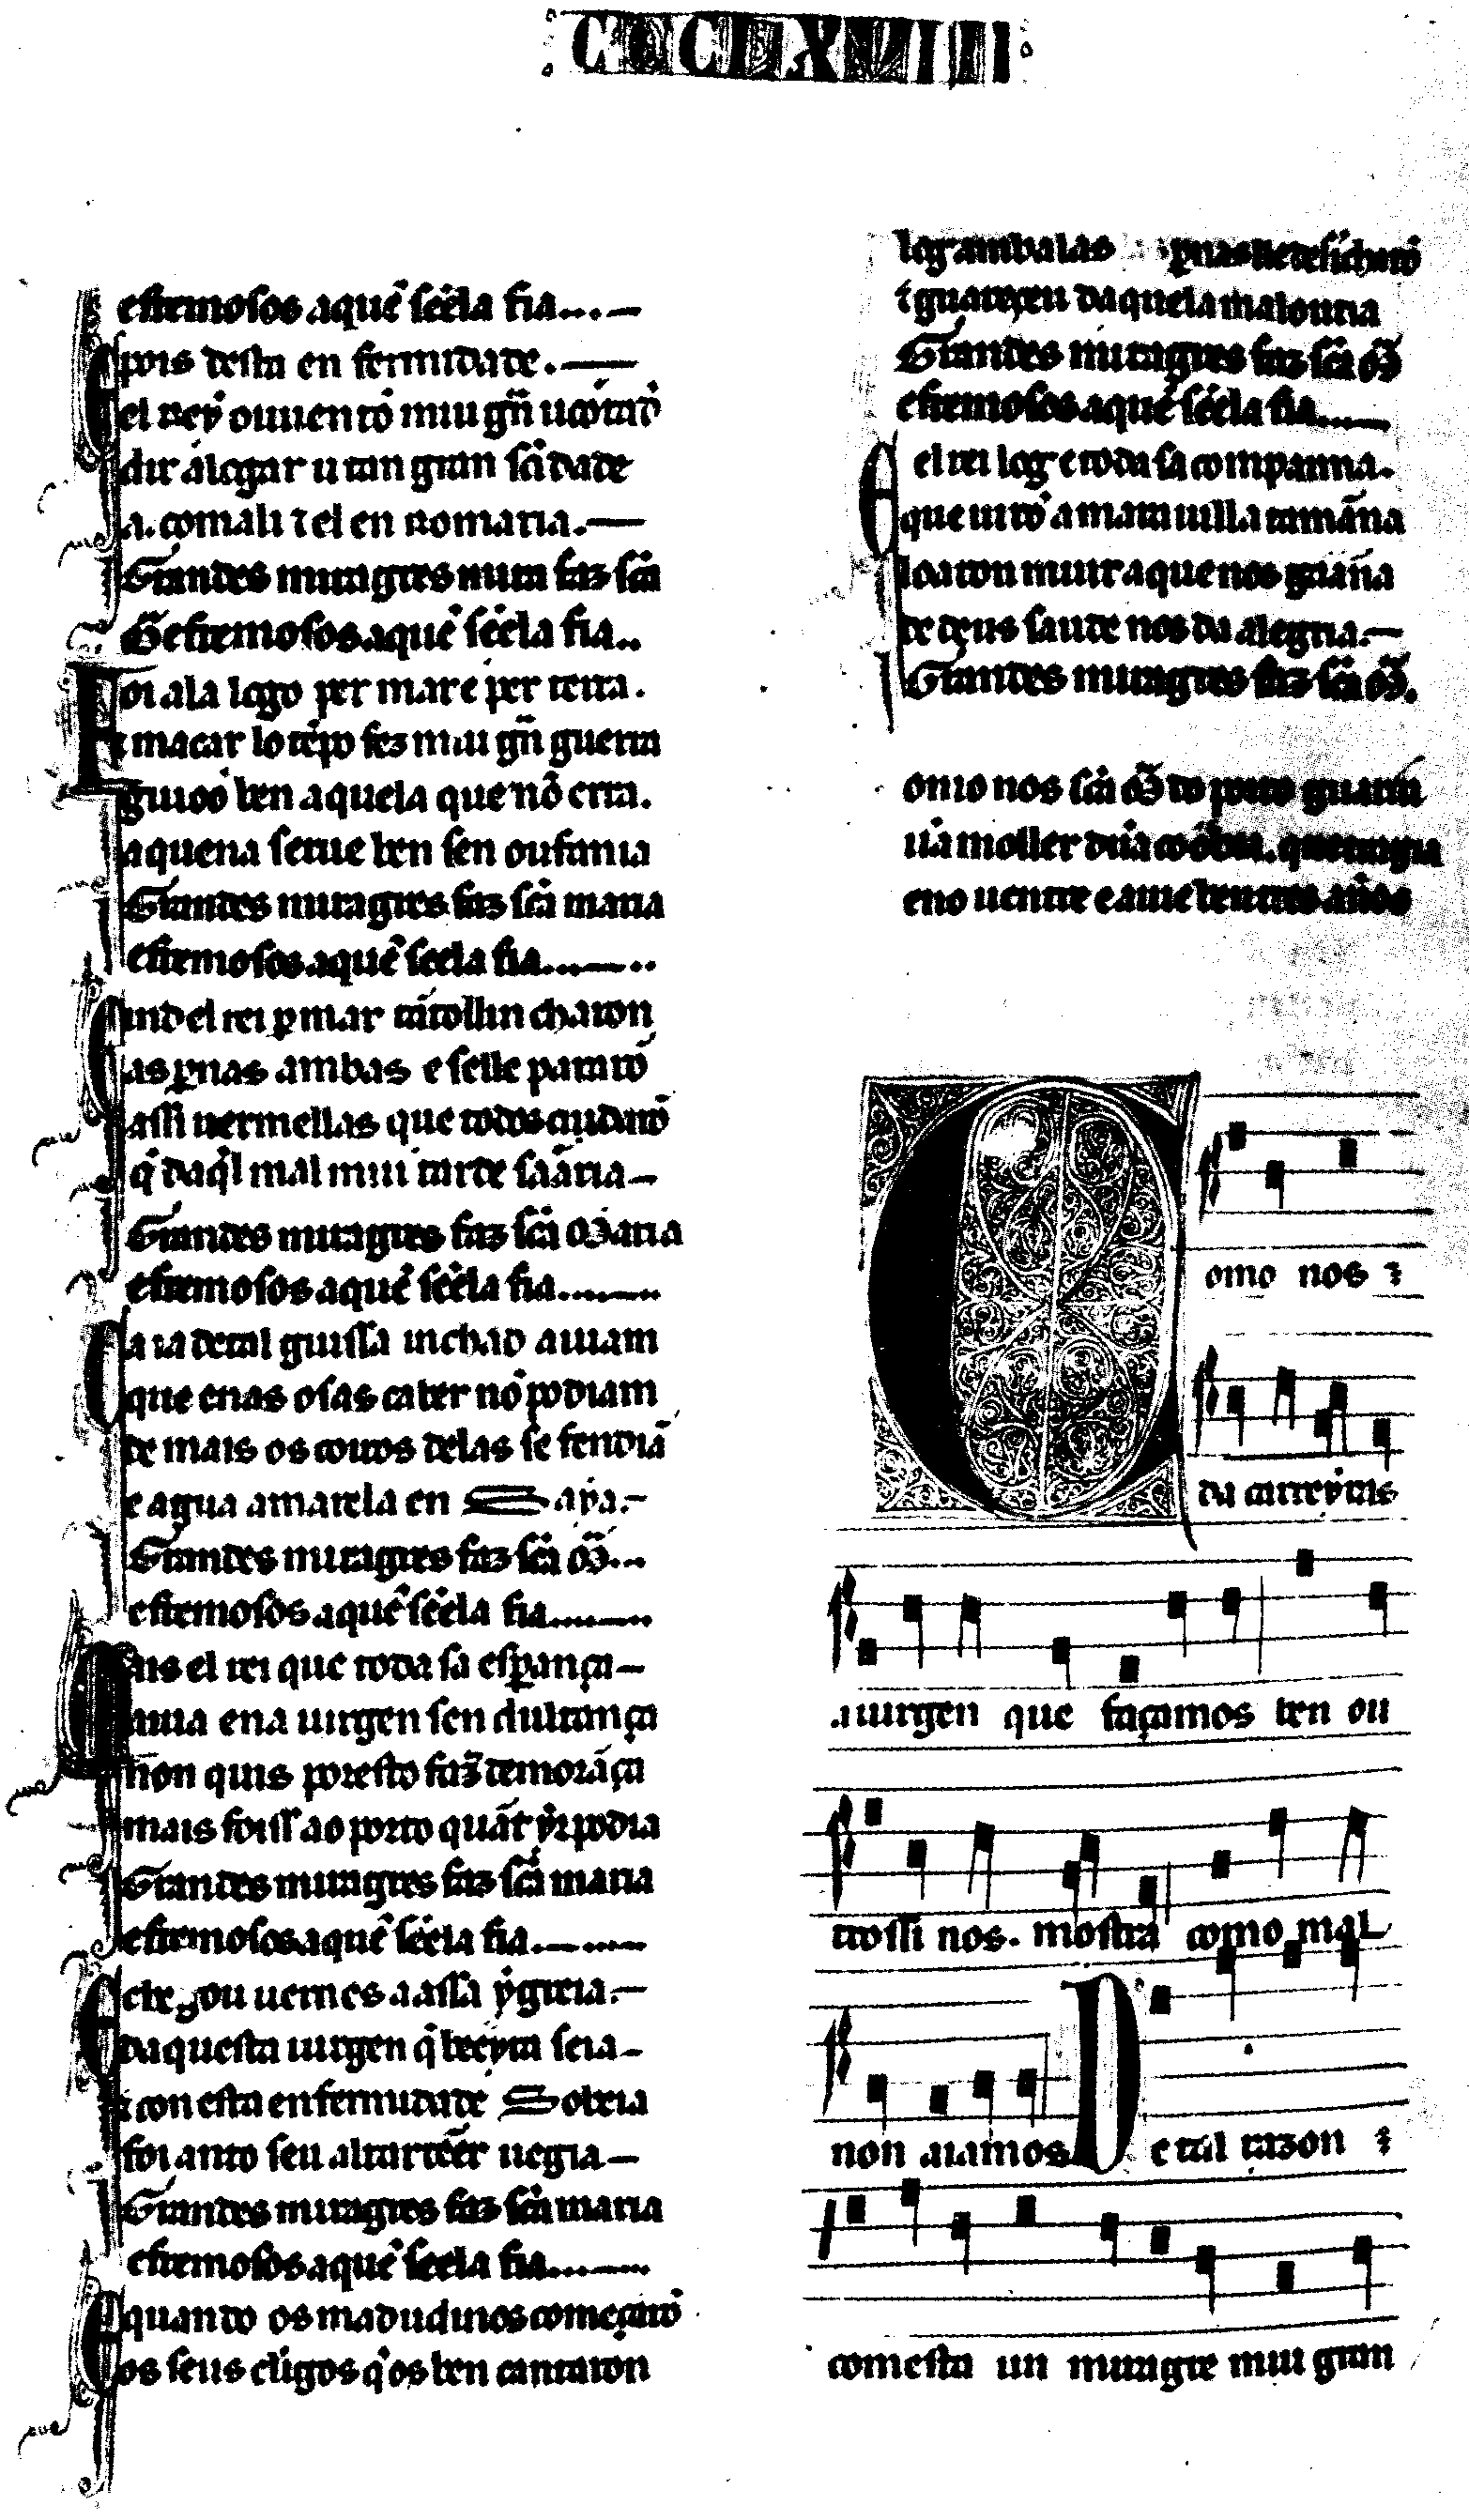 CCCLXVIII
efremosos aquẽ sẽela fia...—
pois desta en fermidade.—
el Rey ouuen tõ mui gñ uoõtad
dir alogar u tan gran sc̃idade
a. comali ⁊ el en Romaria.—
Grandes miragres mira faz sc̃a
M̃ efremosos.aquẽ sẽela fia..
Foi ala logo per mar e per terra.
⁊ macar lo tẽpo fez mui gñ guerra
guioo ben aquela que nõ erra.
aquena serue ben sen oufania
Grandes miragres.faz sc̃a maria
efremosos.aquẽ seela fia...—..
E ind el rei ꝑ mar tãtollin charon
as ꝑnas ambas e selle pararõ
assi uermellas que todos cuidarõ
q̃ daq̃l mal mui tarde saãria—
Grandes miragres faz sc̃a Maria
efremosos aquẽ sẽela fia.......
Ca ia detal guissa inchad auiam
que enas osas caber nõ podiam
de mais os coiros delas se fendiã
e agua amarela en Saya.—
Grandes miragres faz sc̃a M̃...
efremosos aquẽ sẽela fia.......
Mais el rei que toda sa esꝑança—
auia ena uirgen sen dultança
non quis poresto faz̃ demorãça
mais foiss ao porto quãt yr podia
Grandes miragres faz sc̃a maria
efremosos.aquẽ sẽela fia.—....
E chegou uernes a assa ygreia.—
daquesta uirgen q̃ beeyta seia—
⁊ con esta enfermidade Sobeia
foi anto seu altar tẽer uegia—
Grandes miragres faz sc̃a maria
efremosos aquẽ seela fia...—
E quando os madudinos começarõ
os seus clerigos q̃ os ben cantaron
log ambalas ꝑnas lle desincharõ
⁊ guareceu daquela maloutia
Grandes miragres faz sc̃a M̃
efremosos aquẽ sẽela fia....—
E el rei log e toda sa companna.
que uirõ a marauilla tamãna
loaron muit aque nos guãna
de deus saude nos da alegria.—
Grandes miragres faz sc̃a M̃.
omo nos sc̃a M̃ do porto guariu
ũa moller dũa coobra. que tragia
eno uentre e auie ben tres años
Como nos ⁊
da carreyras
a uirgen que façamos ben ou
trossi nos. mostra como mal
non aiamos De tal razon ⁊
comesta un miragre mui gran